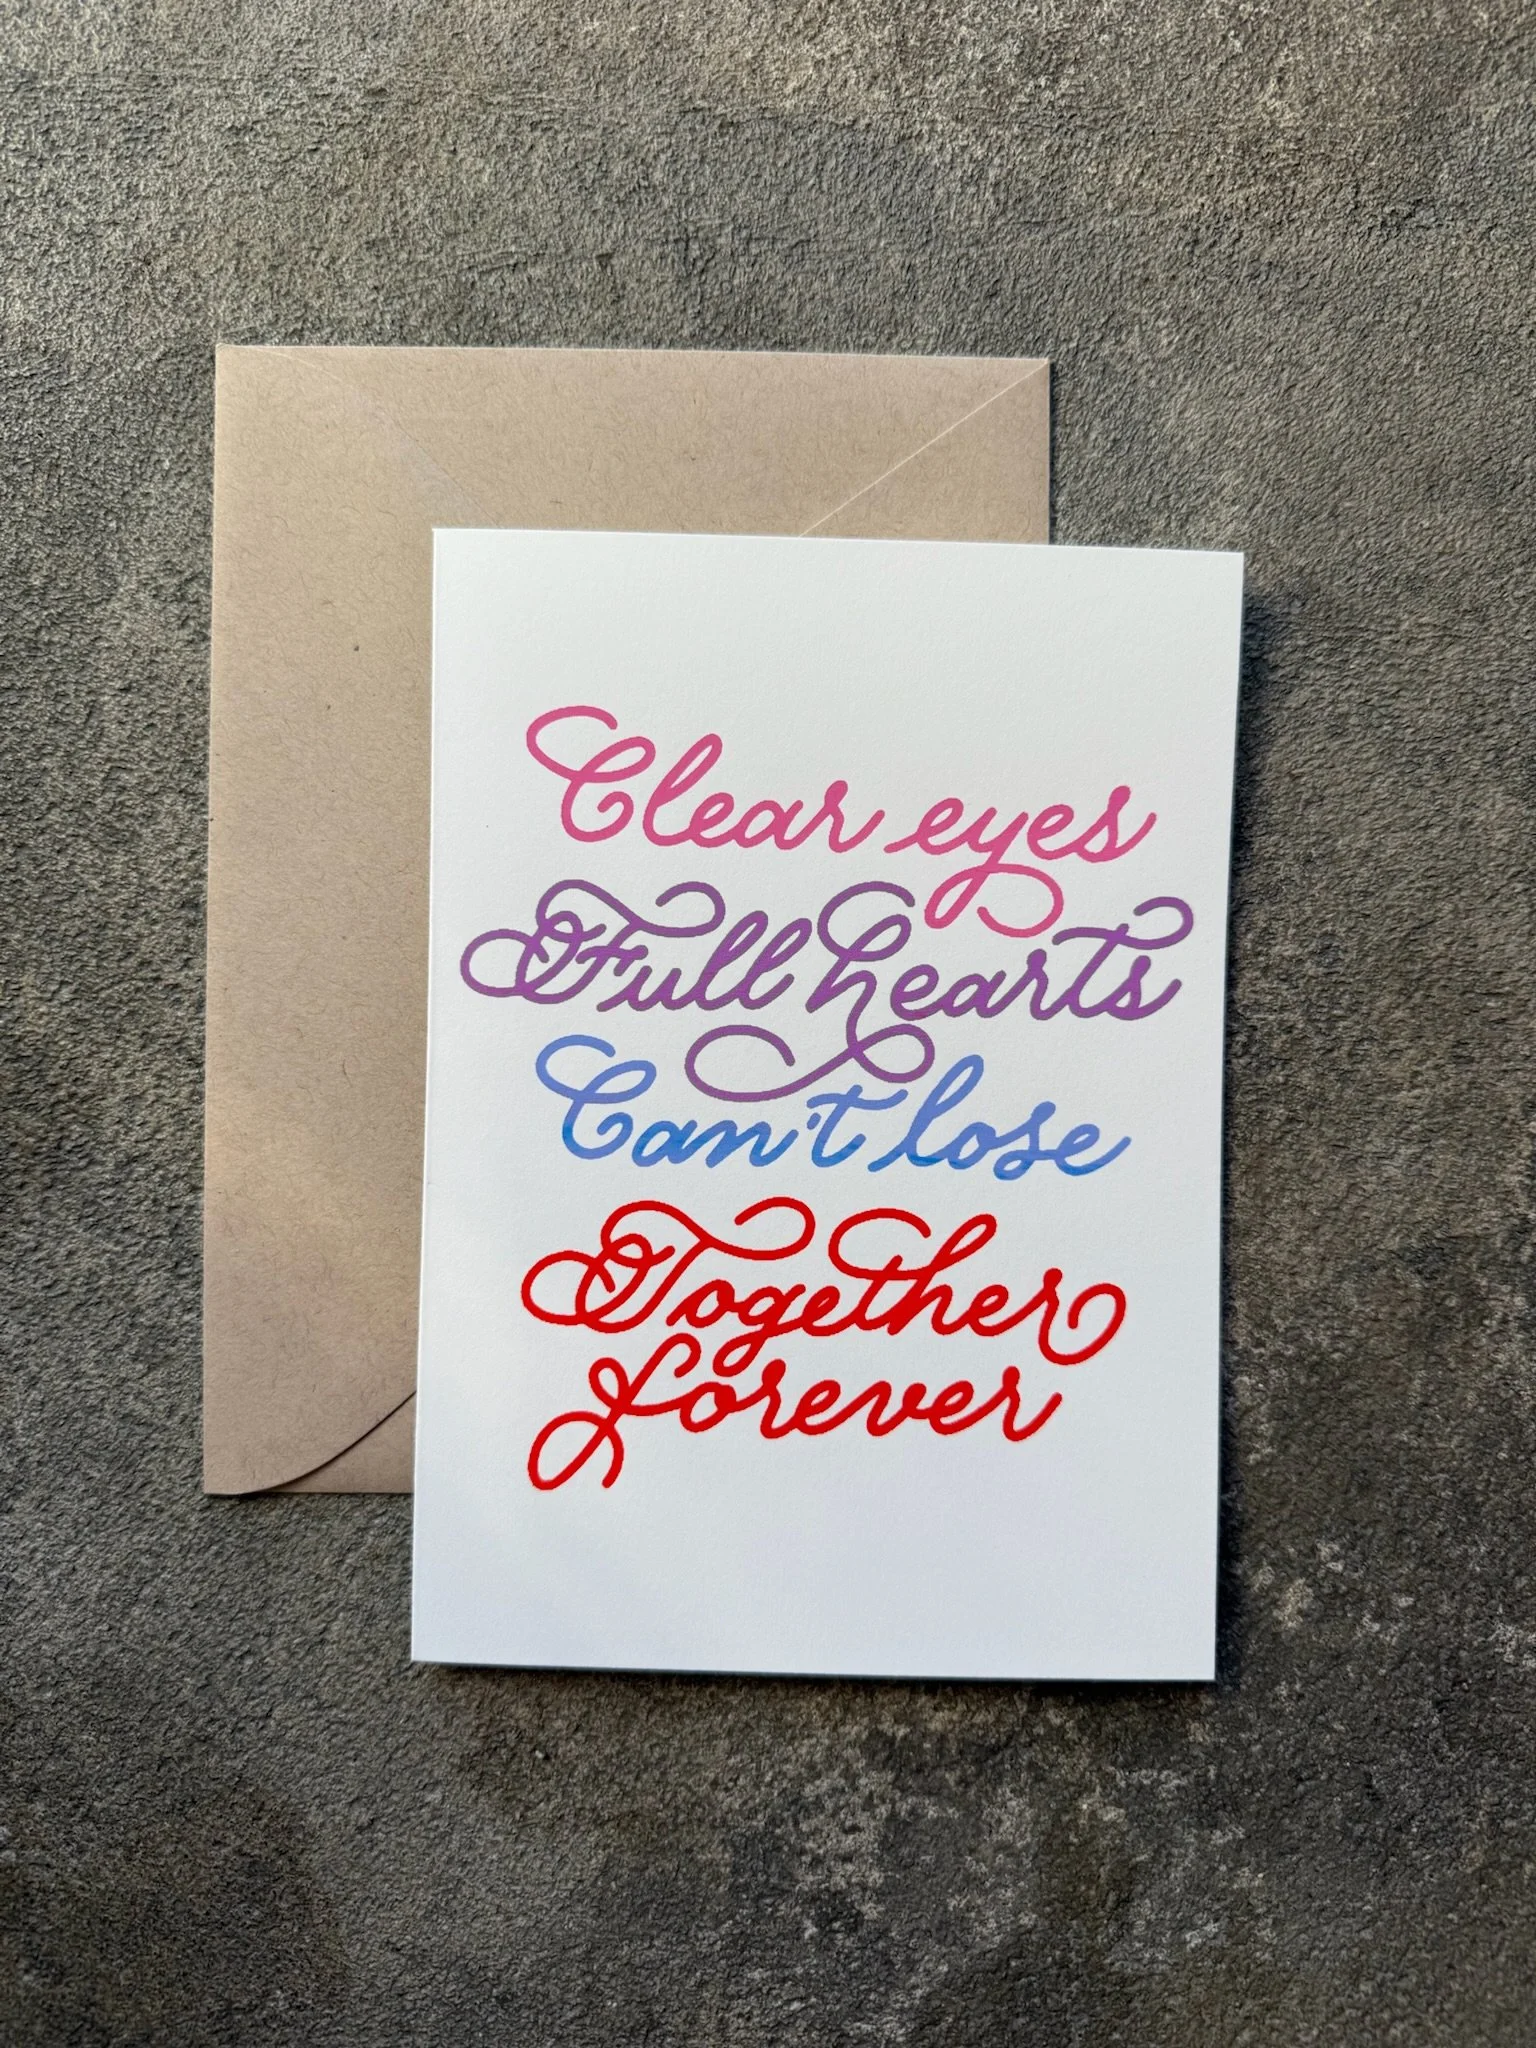 Clear eyes
Full hearts
Can't lose
Together
forever